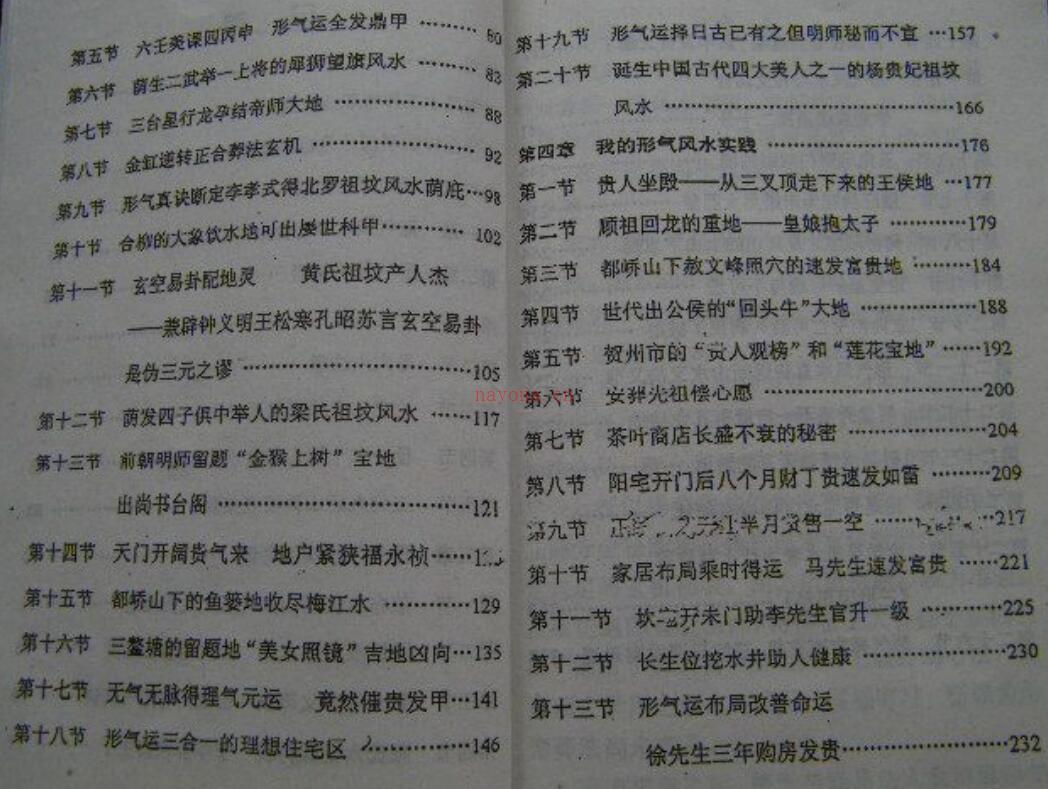 第五节 六壬美课四丙申 形气运全发鼎甲 ……… 80
第六节 荫生二武举一上将的犀狮望旗风水 ……… 83
第七节 三台星行龙孕结帝师大地 ……………… 88
第八节 金缸逆转正合葬法玄机 ……………… 92
第九节 形气真诀断定李孝式得北罗祖坟风水荫庇…98
第十节 合柳的大象饮水地可出屡世科甲………… 102
第十一节 玄空易卦配地灵 黄氏祖坟产人杰
——兼辟钟义明王松寒孔昭苏言玄空易卦
是伪三元之谬 ……………………………105
第十二节 荫发四子俱中举人的梁氏祖坟风水 ……117
第十三节 前朝明师留题“金猴上树”宝地
出尚书台阁 ………………………………121
第十四节 天门开阔贵气来 地户紧狭福永祯……
第十五节 都峤山下的鱼篓地收尽梅江水 …………129
第十六节 三鳌塘的留题地“美女照镜”吉地凶向…135
第十七节 无气无脉得理气元运 竟然催贵发甲…141
第十八节 形气运三合一的理想住宅区 …………146
第十九节 形气运择日古已有之但明师秘而不宣 …157
第二十节 诞生中国古代四大美人之一的杨贵妃祖坟
风水 ………………………………………166
第四章 我的形气风水实践 ……………………176
第一节 贵人坐殿——从三叉顶走下来的王侯地 …177
第二节 顾祖回龙的重地——皇娘抱太子 …………179
第三节 都峤山下赦文峰照穴的速发富贵地 ………184
第四节 世代出公侯的“回头牛”大地 ……………188
第五节 贺州市的“贵人观榜”和“莲花宝地”……192
第六节 安葬先祖偿心愿 ………………………200
第七节 茶叶商店长盛不衰的秘密 ………………204
第八节 阳宅开门后八个月财丁贵速发如雷 ………209
第九节 半月货售一空 ………………217
第十节 家居布局乘时得运 马先生速发富贵 ……221
第十一节 坎宅开未门助李先生官升一级 …………225
第十二节 长生位挖水井助人健康 ………………230
第十三节 形气运布局改善命运
徐先生三年购房发贵………………………232
nayona.cn